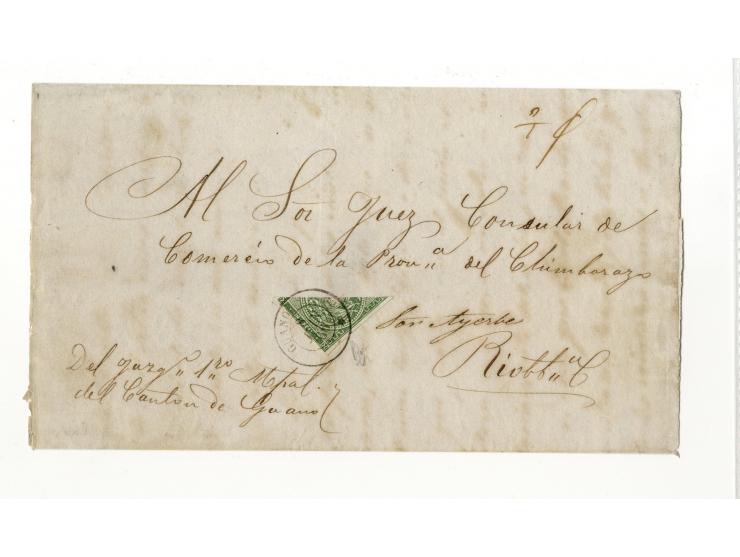 Al Sor Juez Consular de
Comercio de la Prov.a del Chimborazo
GUANO
Sor Ayerbe
Riobb.a
Del Juzg.o 1.ro Mpal.
del Canton de Guano